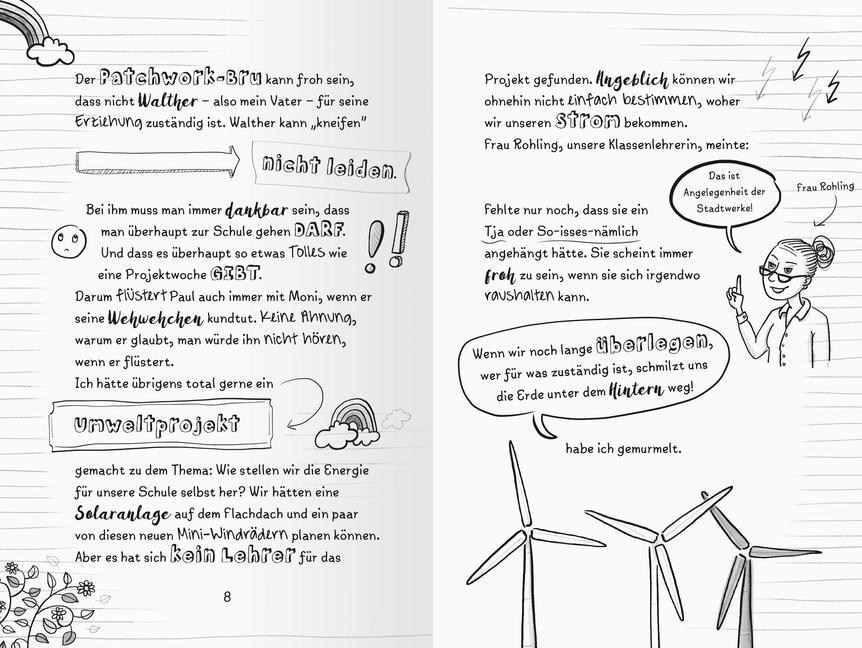 Der Patchwork-Bru kann froh sein,
dass nicht Walther – also mein Vater – für seine
Erziehung zuständig ist. Walther kann „kneifen"
nicht leiden.
Bei ihm muss man immer dankbar sein, dass
man überhaupt zur Schule gehen DARF.
Und dass es überhaupt so etwas Tolles wie
eine Projektwoche GIBT.
Darum flüstert Paul auch immer mit Moni, wenn er
seine Wehwehchen kundtut. Keine Ahnung,
warum er glaubt, man würde ihn nicht hören,
wenn er flüstert.
Ich hätte übrigens total gerne ein
Umweltprojekt
gemacht zu dem Thema: Wie stellen wir die Energie
für unsere Schule selbst her? Wir hätten eine
Solaranlage auf dem Flachdach und ein paar
von diesen neuen Mini-Windrädern planen können.
Aber es hat sich kein Lehrer für das
8
Projekt gefunden. Angeblich können wir
ohnehin nicht einfach bestimmen, woher
wir unseren Strom bekommen.
Frau Rohling, unsere Klassenlehrerin, meinte:
Das ist
Angelegenheit der
Stadtwerke!
Frau Rohling
Fehlte nur noch, dass sie ein
Tja oder So-isses-nämlich
angehängt hätte. Sie scheint immer
froh zu sein, wenn sie sich irgendwo
raushalten kann.
Wenn wir noch lange überlegen,
wer für was zuständig ist, schmilzt uns
die Erde unter dem Hintern weg!
habe ich gemurmelt.